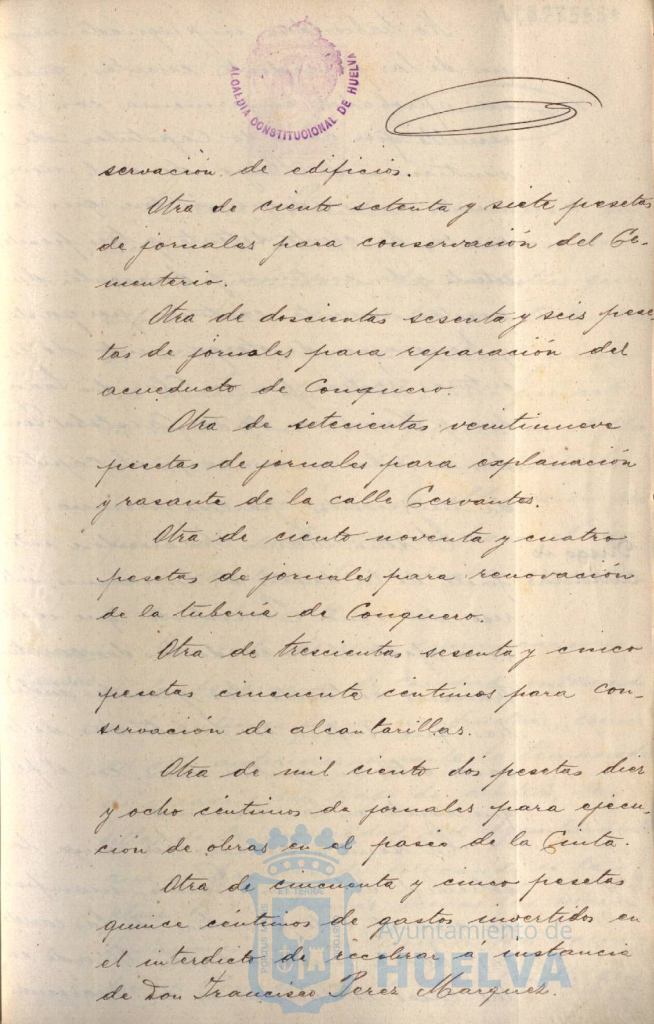 ALCALDIA CONSTITUCIONAL DE HUELVA
servación de edificios.
Otra de ciento setenta y siete pesetas
de jornales para conservación del Ce-
menterio.
Otra de doscientas sesenta y seis pese-
tas de jornales para reparación del
acueducto de Conquero.
Otra de setecientas veintinueve
pesetas de jornales para explanación
y rasante de la calle Cervantes.
Otra de ciento noventa y cuatro
pesetas de jornales para renovación
de la tubería de Conquero.
Otra de trescientas sesenta y cinco
pesetas cincuenta céntimos para con-
servación de alcantarillas.
Otra de mil ciento dos pesetas diez
y ocho céntimos de jornales para ejecu-
ción de obras en el paseo de la Cinta.
Otra de cincuenta y cinco pesetas
quince céntimos de gastos invertidos en
el interdicto de recobrar á instancia
de Don Francisco Perez Marquez.
Ayuntamiento de
HUELVA